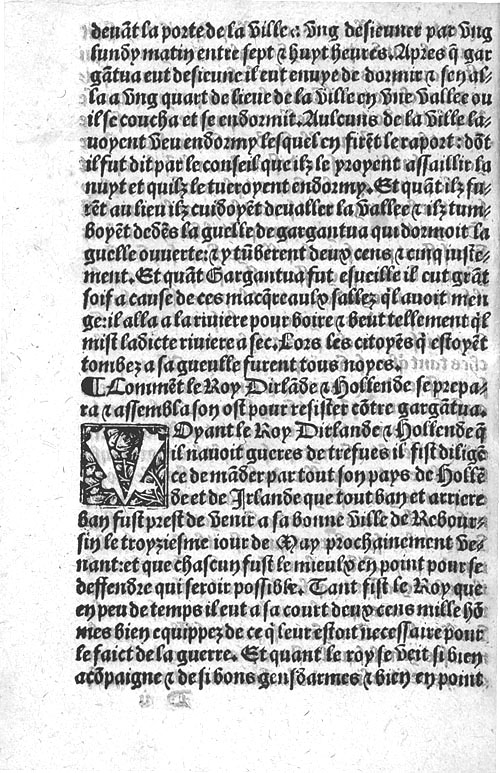 deuāt la porte de la ville a vng desieuner par vng
lundy matin entre sept ⁊ huyt heures. Apres q̄ gar
gātua eut desieune il eut enuye de dormir ⁊ sen al-
la a vng quart de lieue de la ville en vne vallee ou
il se coucha et se endormit. Aulcuns de la ville la-
uoyent veu endormy lesquel en firēt le raport: dōt
il fut dit par le conseil que ilz le yroyent assaillir la
nuyt et quilz le tueroyent endormy. Et quāt ilz fu-
rēt au lieu ilz cuidoyēt deualler la vallee ⁊ ilz tum-
boyēt dedēs la guelle de gargantua qui dormoit la
guelle ouuerte: ⁊ y tūberent deux cens ⁊ cinq iustē-
ment. Et quāt Gargantua fut esueille il eut grāt
soif a cause de ces macq̄reaulx sallez q̄l auoit men
ge: il alla a la riuiere pour boire ⁊ beut tellement q̄l
mist ladicte riuiere a sec. Lors les citoyēs q̄ estoyēt
tombez a sa gueulle furent tous noyes.
¶ Commēt le Roy Dirlāde ⁊ Hollende se prepa-
ra ⁊ assembla son ost pour resister cōtre gargātua.
VOyant le Roy Dirlande ⁊ Hollende q̄
il nauoit gueres de trefues il fist diligē
ce de māder par tout son pays de Hollē
de et de Irlande que tout ban et arriere
ban fust prest de venir a sa bonne ville de Rebour-
sin le troyziesme iour de May prochainement ve-
nant: et que chascun fust le mieulx en point pour se
deffendre qui seroir possible. Tant fist le Roy que
en peu de temps il eut a sa court deux cens mille hō
mes bien equippez de ce q̄ leur estoit necessaire pour
le faict de la guerre. Et quant le roy se veit si bien
acōpaigne ⁊ de si bons gensdarmes ⁊ bien en point